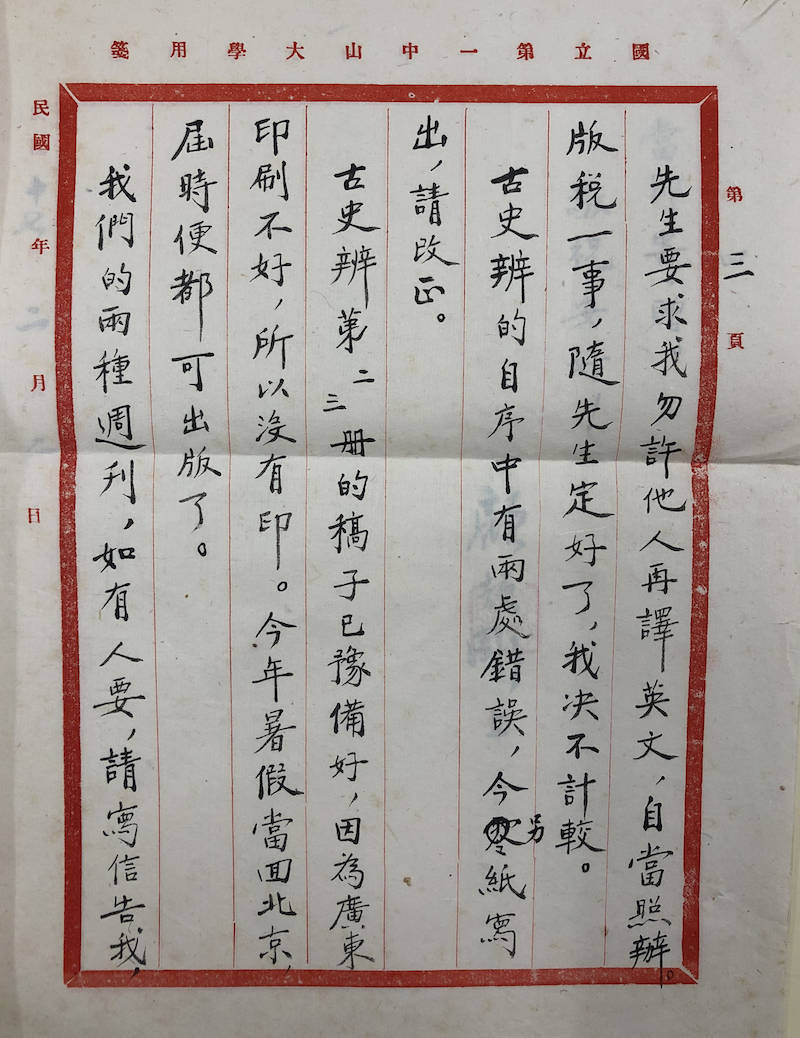 國立第一中山大學用箋
第三頁
先生要求我勿許他人再譯英文，自當照辦。
版稅一事，隨先生定好了，我決不計較。
古史辨的自序中有兩處錯誤，今另紙寫
出，請改正。
古史辨第二三册的稿子已豫備好，因為廣東
印刷不好，所以沒有印。今年暑假當回北京，
屆時便都可出版了。
我們的兩種週刊，如有人要，請寫信告我，
民國十七年二月 日